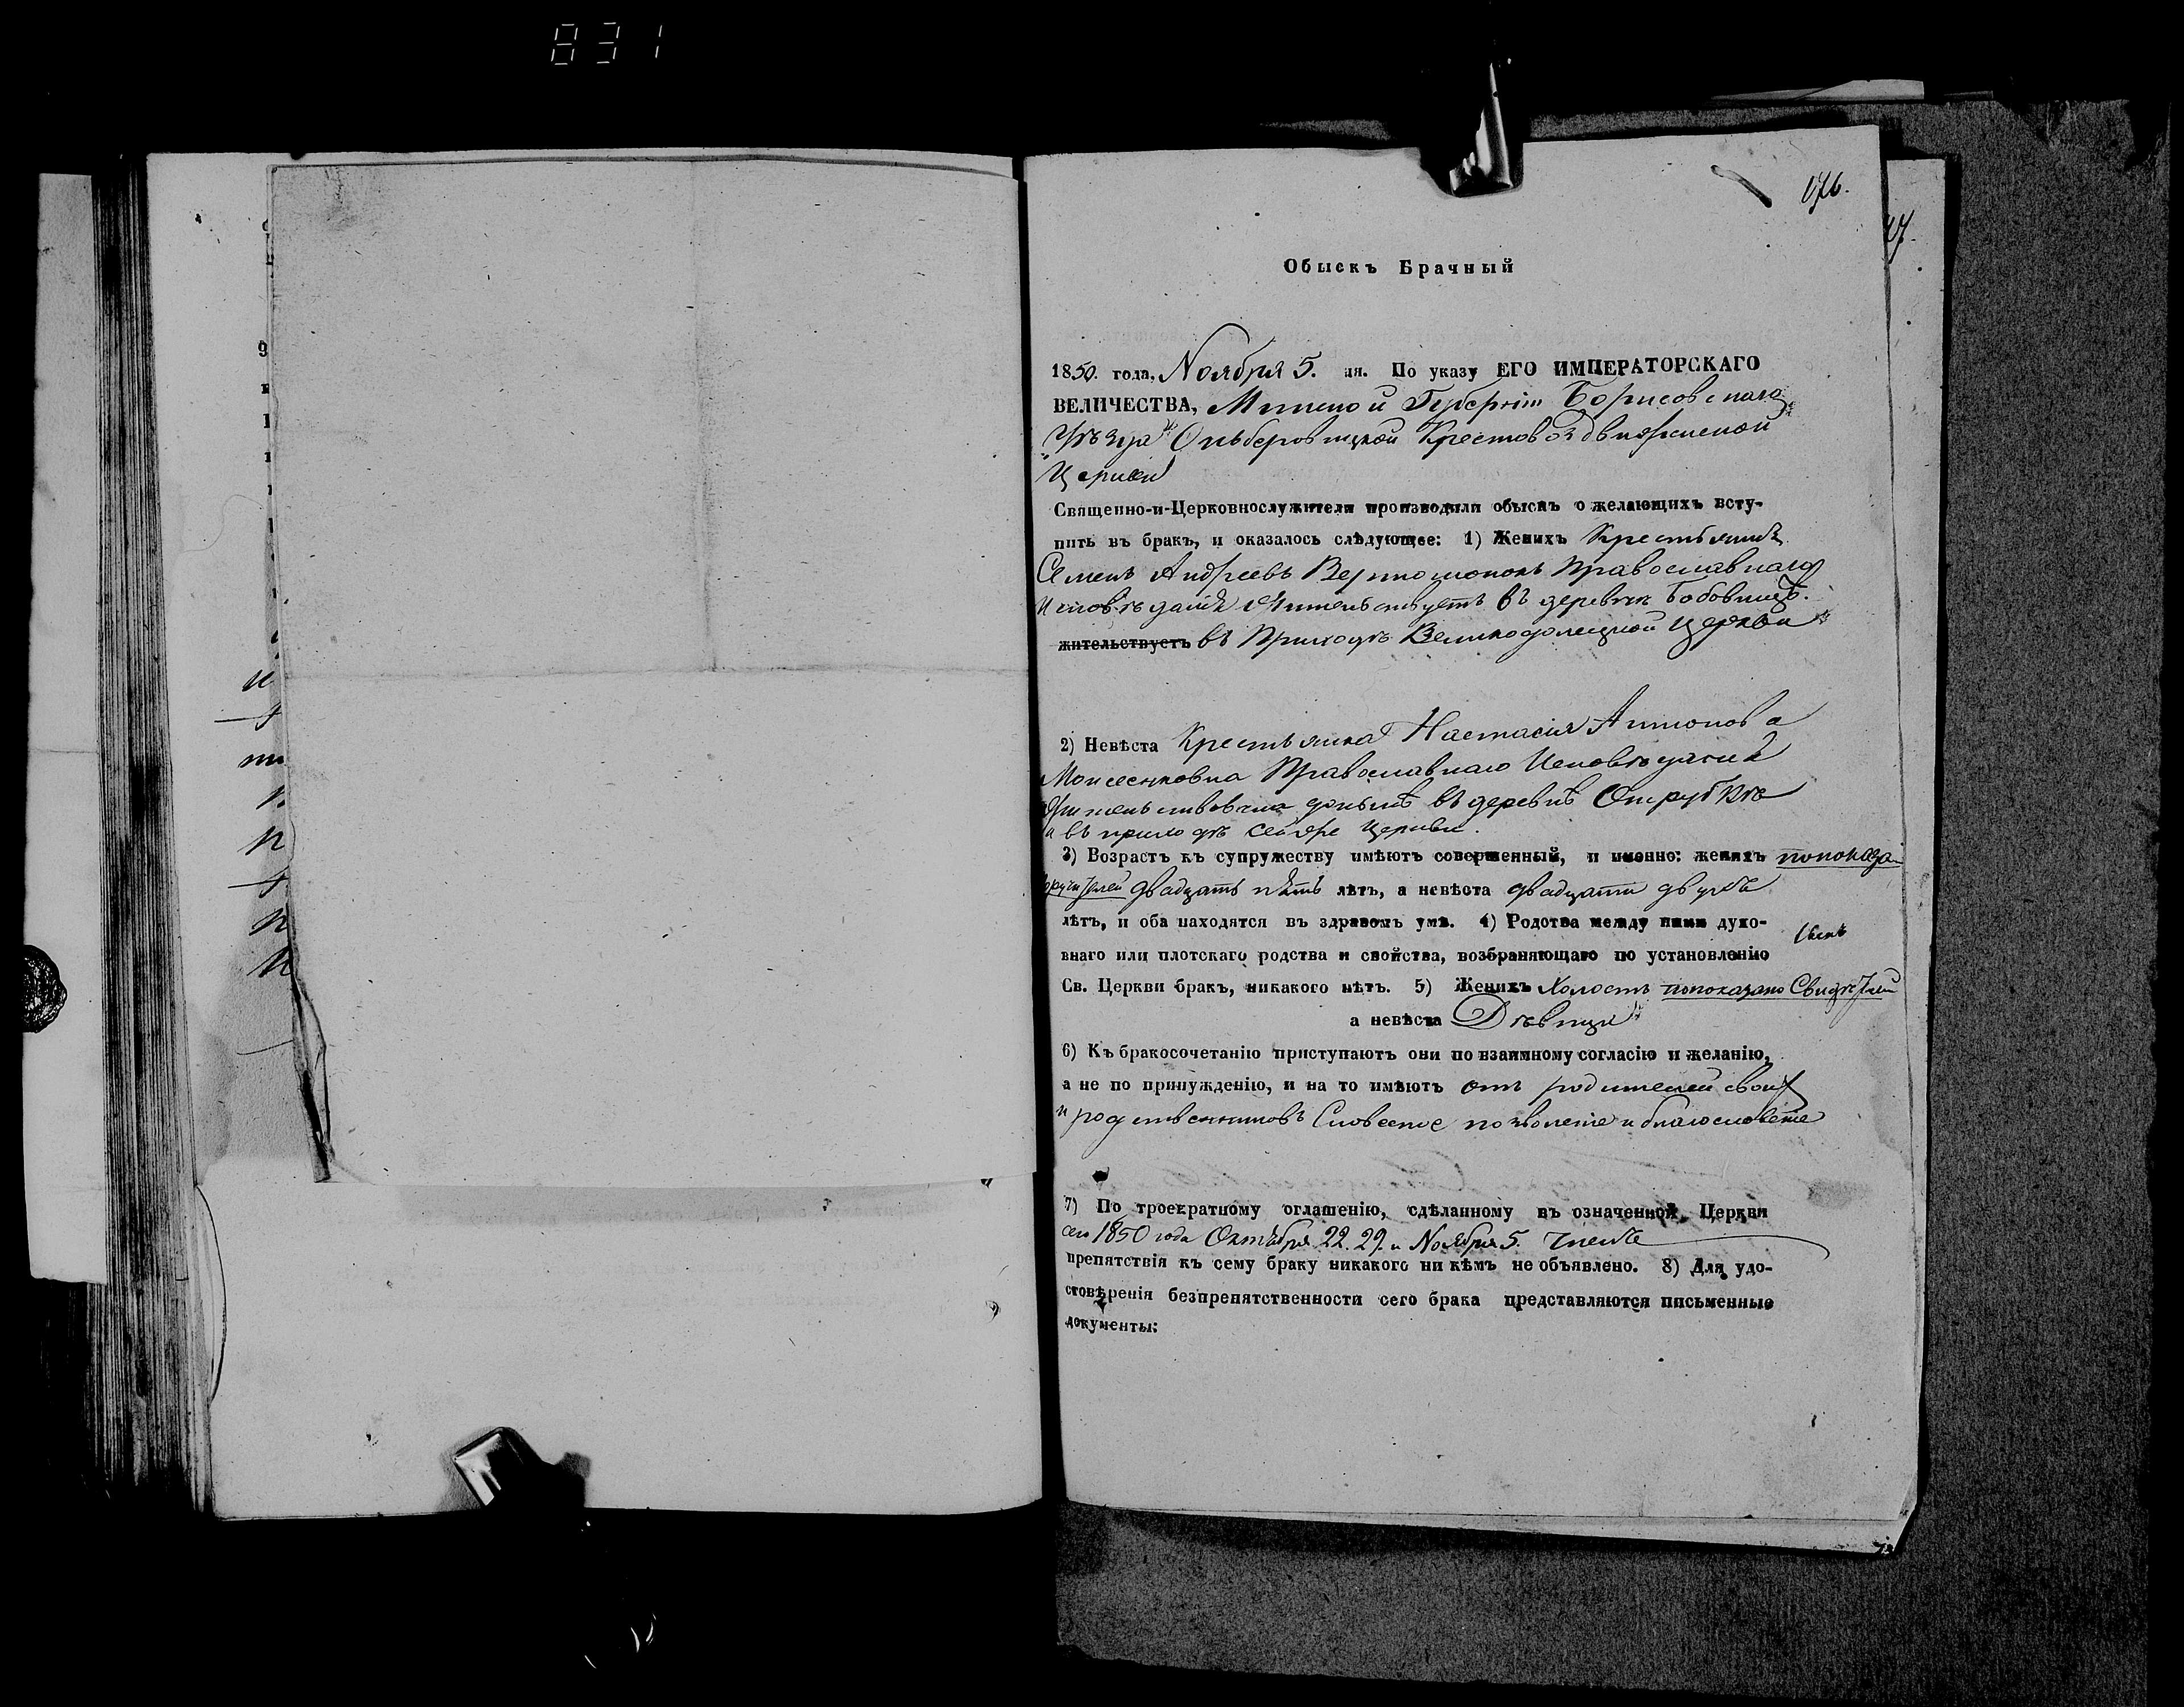 831
Обыскъ Брачный
1850. года, Ноября 5. дня. По указу ЕГО ИМПЕРАТОРСКАГО
ВЕЛИЧЕСТВА, Минской Губерніи Борисовскаго
Уѣзда Ольберовицкой Крестовоздвиженской
Церкви
Священно-и-Церковнослужители производили обыскъ о желающихъ всту-
пить въ бракъ, и оказалось слѣдующее: 1) Женихъ Крестьянинъ
Семенъ Андреевъ Православнаго
Исповѣданія Жительствуетъ въ деревнѣ
жительствуетъ въ Приходѣ Великодолецкой Церкви
2) Невѣста Крестьянка Настасія Антонова
Моисеенковна Православнаго Исповѣданія
Жительствовала донынѣ въ деревнѣ Отрубкѣ
въ приходѣ сей же Церкви.
3) Возрастъ къ супружеству имѣютъ совершенный, и именно: женихъ
двадцать пять лѣтъ, а невѣста двадцати двухъ
лѣтъ, и оба находятся въ здравомъ умѣ. 4) Родства между ними духо-
внаго или плотскаго родства и свойства, возбраняющаго по установленію
Св. Церкви бракъ, никакого нѣтъ. 5) Женихъ Холостъ попоказано
а невѣста Дѣвица
6) Къ бракосочетанію приступаютъ они по взаимному согласію и желанію,
а не по принужденію, и на то имѣютъ отъ родителей своих
и родственниковъ Словесное позволеніе и благословеніе
7) По троекратному оглашенію, сдѣланному въ означенной Церкви
сего 1850 года Октября 22. 29. и Ноября 5. числѣ
препятствія къ сему браку никакого ни кѣмъ не объявлено. 8) Для удо-
стовѣренія безпрепятственности сего брака представляются письменные
документы: